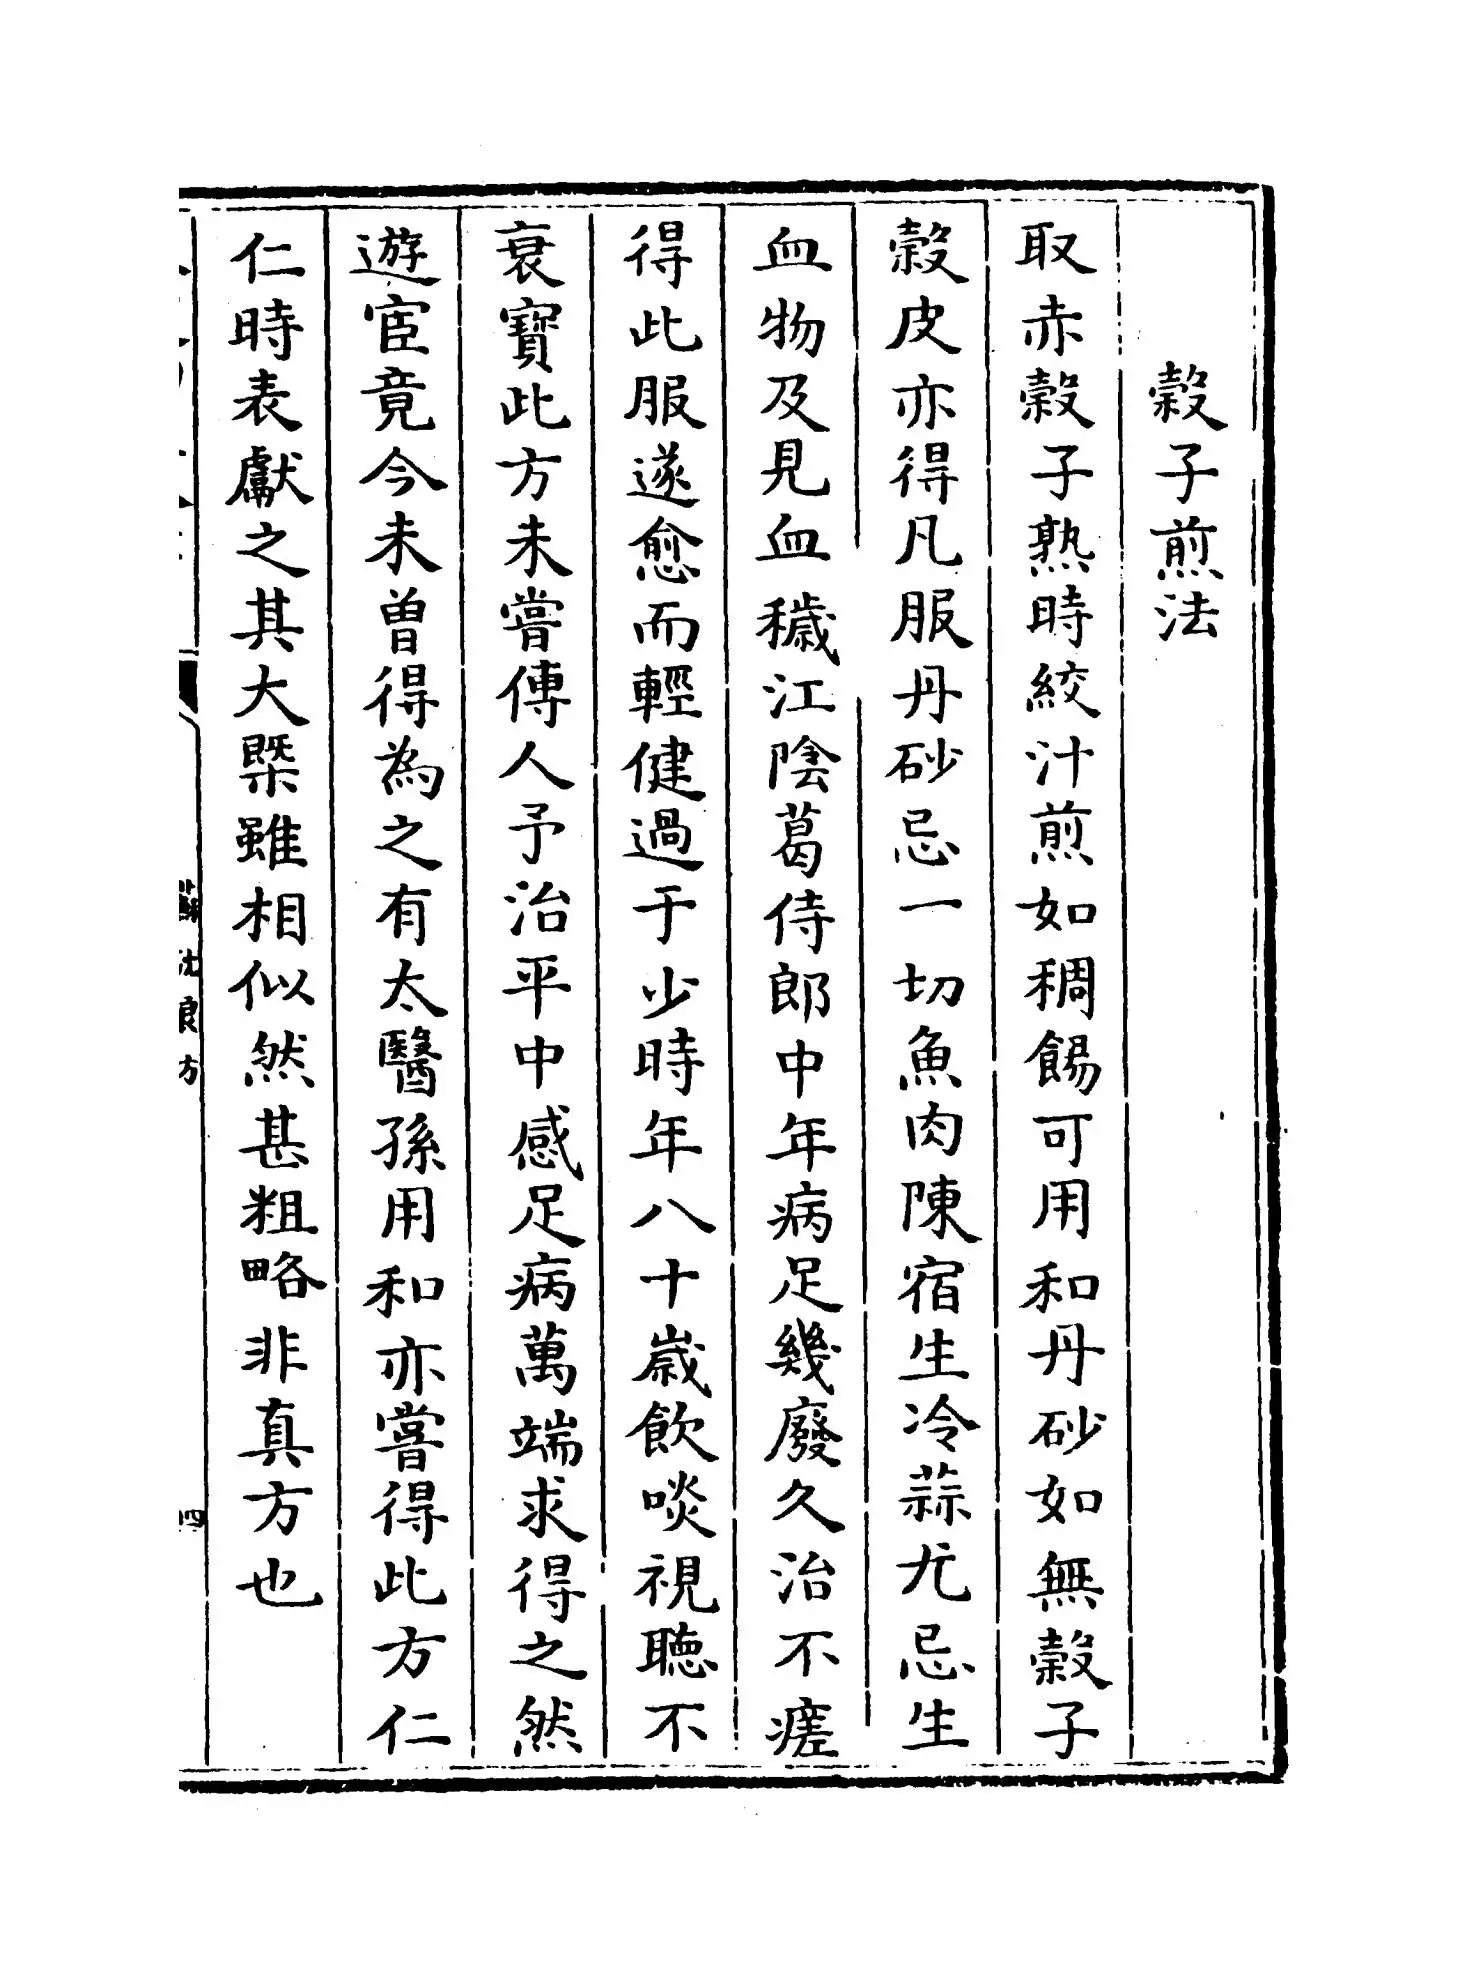 穀子煎法
取赤穀子熟時絞汁煎如稠餳可用和丹砂如無穀子
穀皮亦得凡服丹砂忌一切魚肉陳宿生冷蒜尤忌生
血物及見血穢江陰葛侍郎中年病足幾廢久治不瘥
得此服遂愈而輕健過于少時年八十歲飲啖視聽不
衰寶此方未嘗傳人予治平中感足病萬端求得之然
遊宦竟今未曾得為之有太醫孫用和亦嘗得此方仁
仁時表獻之其大槩雖相似然甚粗略非真方也
蘇沈良方
四